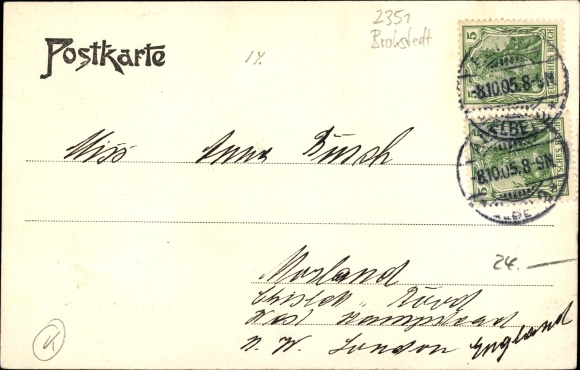 2351
Brokstedt
Postkarte
14.
5
DEUTSCHES REICH
8.10.05. 8-9N
(ELBE)
5
DEUTSCHES REICH
8.10.05. 8-9N
Miss Anna Busch
24.—
Morland
Road
West Hampstead
N. W. London England